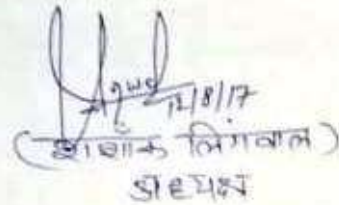 12/8/17
(शशांक लिंगवाल)
अध्यक्ष